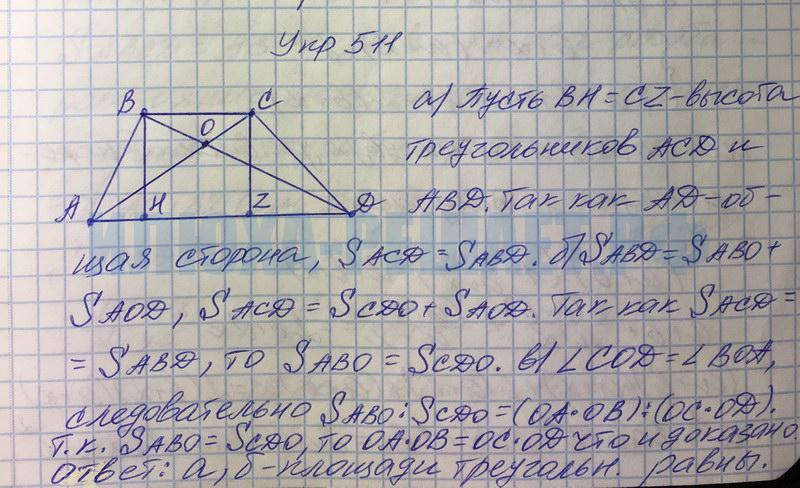 Упр 511
B
C
O
A
H
Z
D
а) Пусть BH = CZ - высота
треугольников ACD и
ABD. Так как AD - об-
щая сторона, SACD = SABD. б) SABD = SABO +
SAOD, SACD = SCDO + SAOD. Так как SACD =
= SABD, то SABO = SCDO. в) ∠COD = ∠BOA,
следовательно SABO : SCDO = (OA·OB) : (OC·OD).
т.к. SABO = SCDO, то OA·OB = OC·OD что и доказано.
Ответ: а, б - площади треугольн. равны.